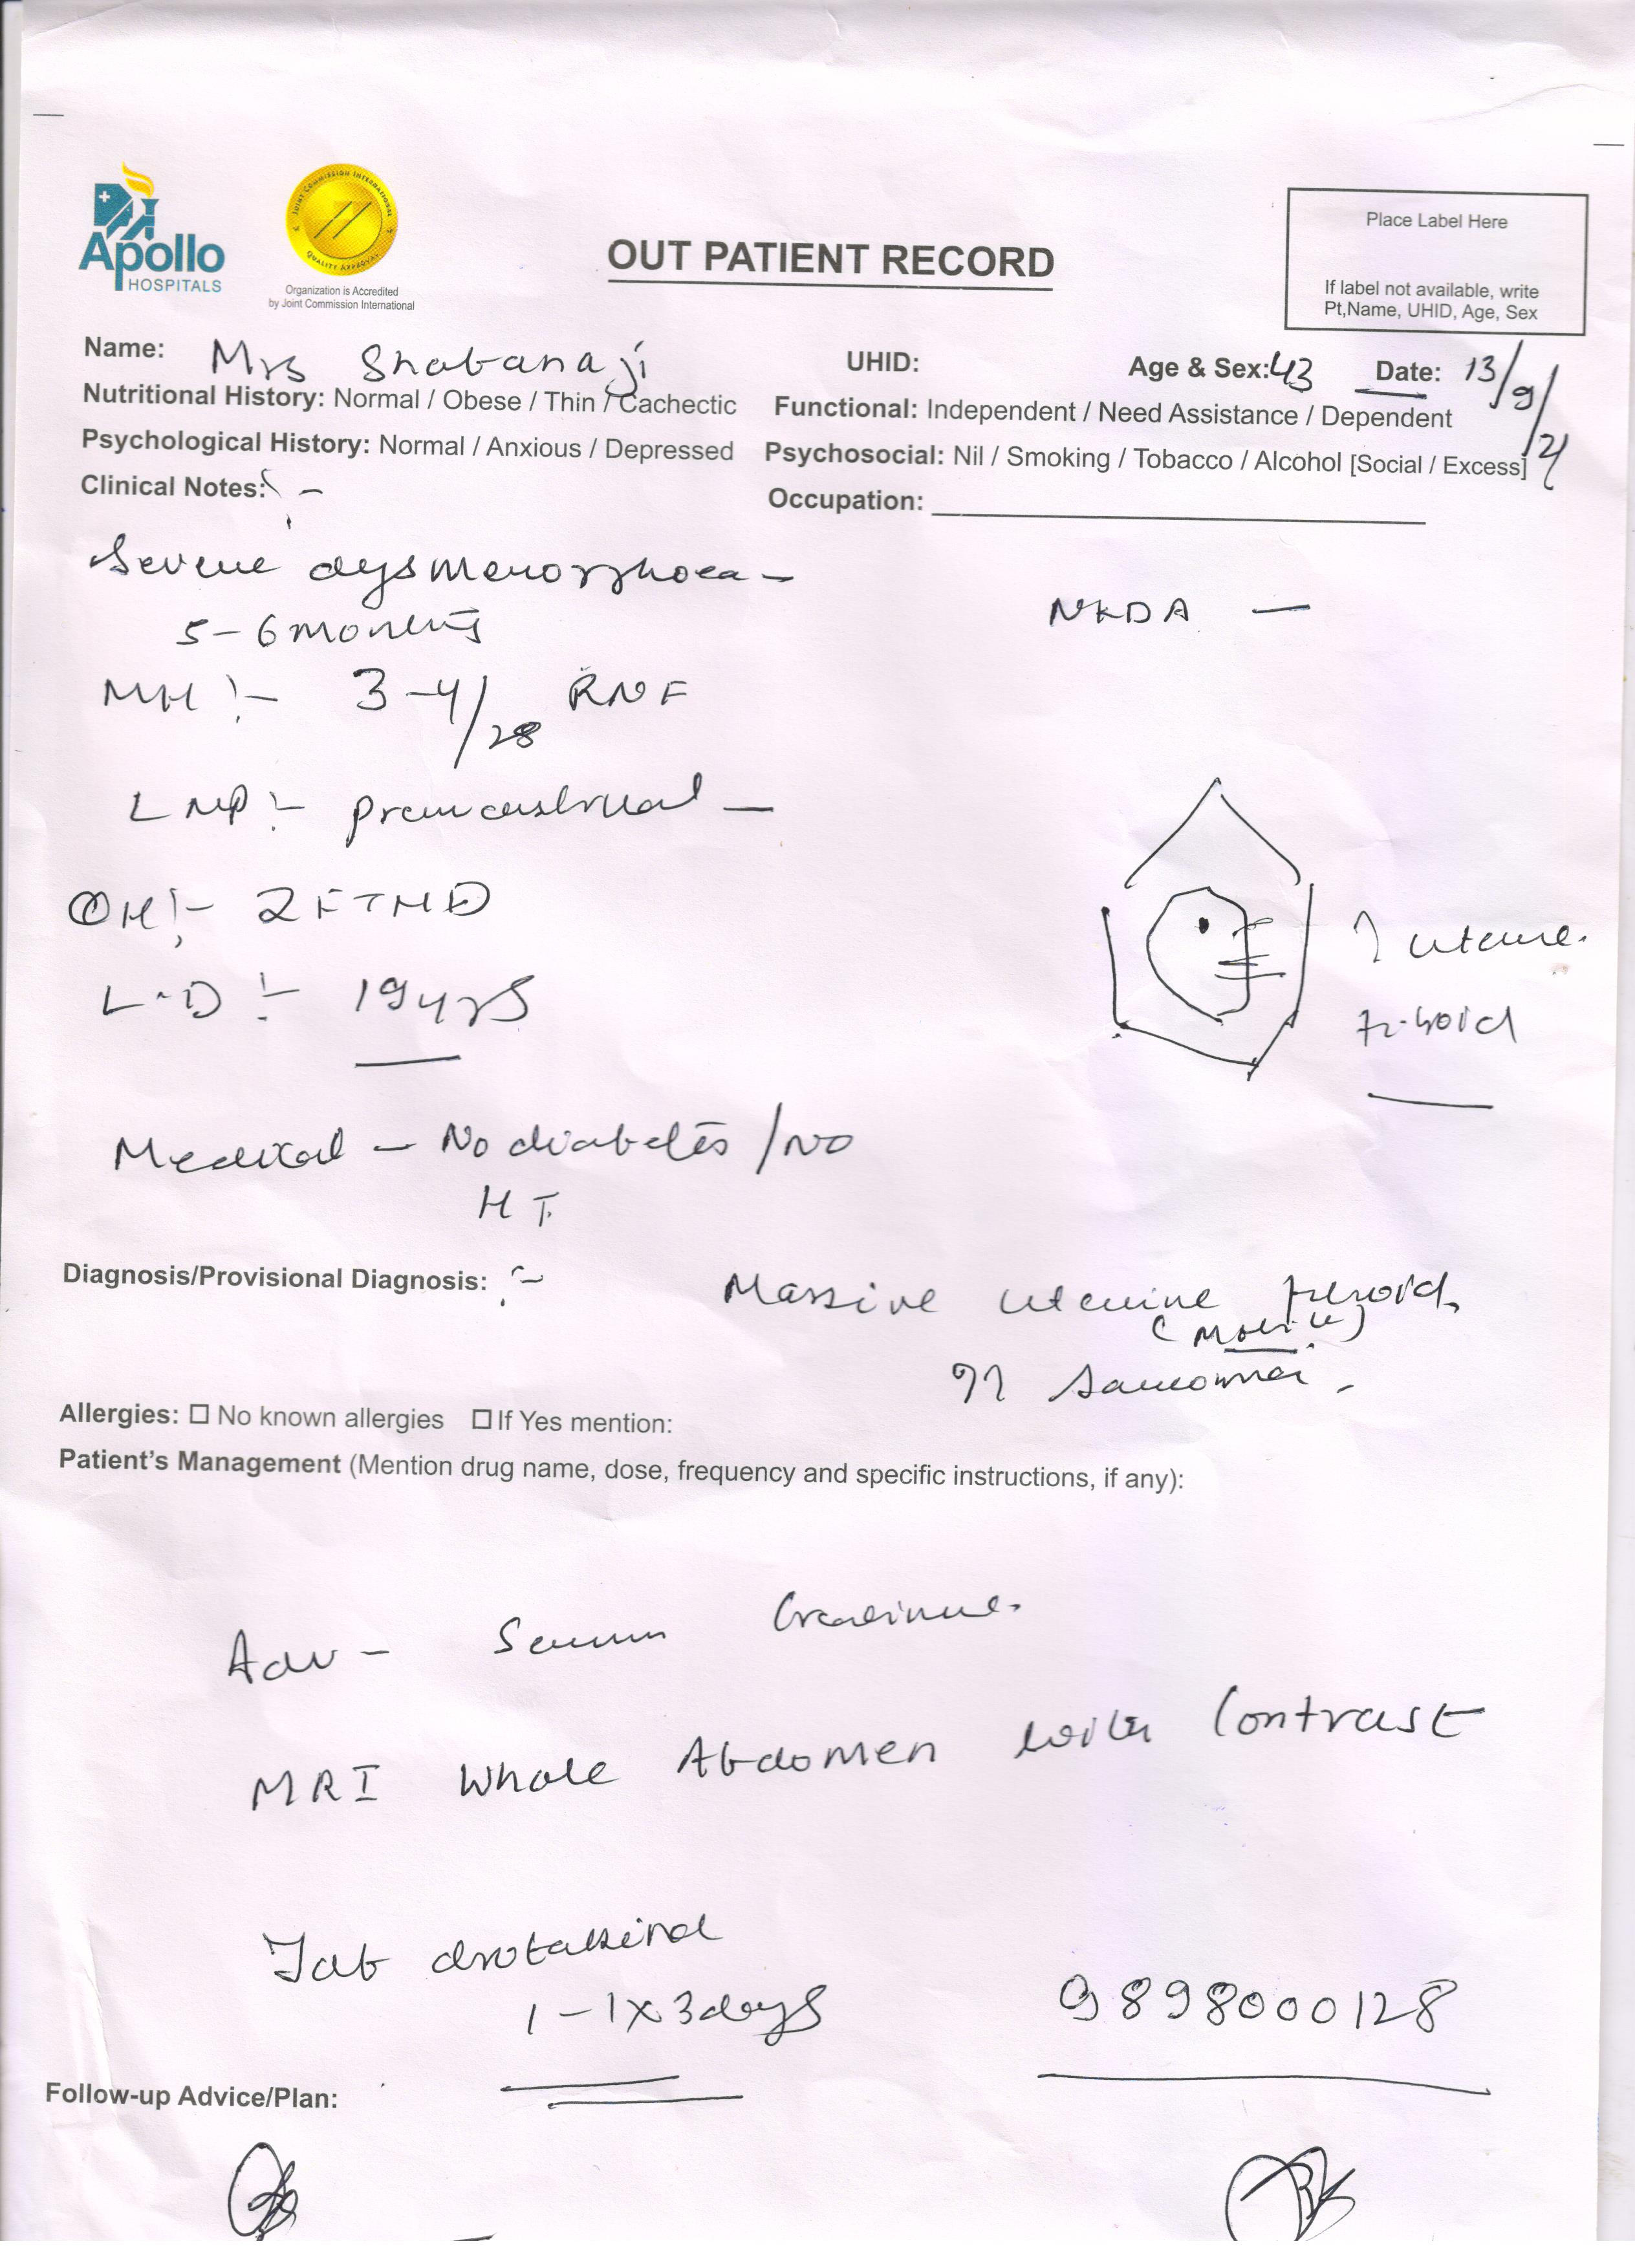 Apollo
HOSPITALS
JOINT COMMISSION INTERNATIONAL
QUALITY APPROVAL
Organization is Accredited
by Joint Commission International
OUT PATIENT RECORD
Place Label Here
If label not available, write
Pt,Name, UHID, Age, Sex
Name: Mrs Shabanaji UHID: Age & Sex: 43 Date: 13/9/21
Nutritional History: Normal / Obese / Thin / Cachectic Functional: Independent / Need Assistance / Dependent
Psychological History: Normal / Anxious / Depressed Psychosocial: Nil / Smoking / Tobacco / Alcohol [Social / Excess]
Clinical Notes: :-
Occupation:
Severe dysmenorrhoea -
5-6 months
NKDA —
MH :- 3-4/28 RNF
LMP :- premenstrual —
OH :- 2FTND
L.D :- 19 yrs
? uterine.
fibroid
Medical - No diabetes / No
HT.
Diagnosis/Provisional Diagnosis: :- Massive uterine fibroid
??
Allergies: ☐ No known allergies ☐ If Yes mention:
Patient's Management (Mention drug name, dose, frequency and specific instructions, if any):
Adv - Serum Creatinine.
MRI Whole Abdomen with Contrast
Tab drotakind
1-1 x 3 days
9898000128
Follow-up Advice/Plan: